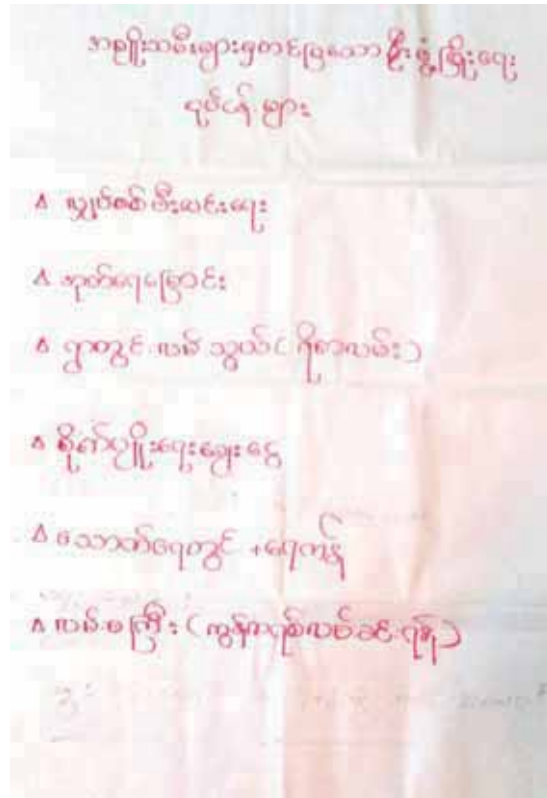 အမျိုးသမီးများမှတင်ပြသော ဦးဖွံ့ဖြိုးရေး
လုပ်ငန်းများ
လျှပ်စစ်မီးလင်းရေး
အုတ်ရေမြောင်း
ရွာတွင်းလမ်းသွယ် (ရိုးရာလမ်း)
စိုက်ပျိုးရေးချေးငွေ
သောက်ရေတွင်း + ရေကန်
လမ်းမကြီး (ကွန်ကရစ်လမ်းခင်းရန်)